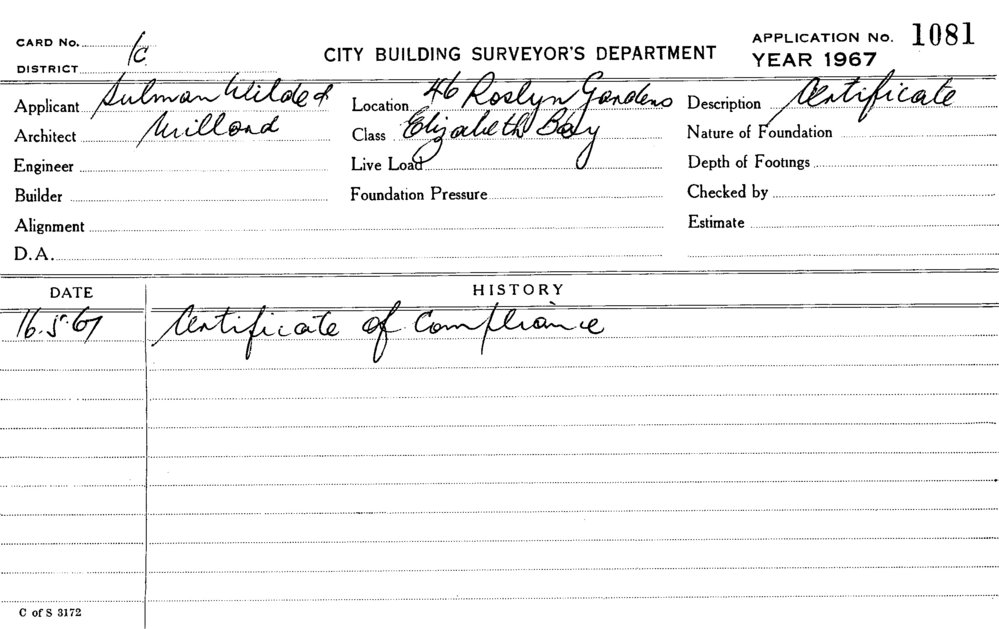 CARD No. 1c
CITY BUILDING SURVEYOR'S DEPARTMENT
APPLICATION No. 1081
YEAR 1967
DISTRICT
Applicant Sulman Wilde &
Location 46 Roslyn Gardens
Description Certificate
Architect Millard
Class Elizabeth Bay
Nature of Foundation
Engineer
Live Load
Depth of Footings
Builder
Foundation Pressure
Checked by
Alignment
Estimate
D.A.
DATE HISTORY
16.5.67 Certificate of Compliance
C of S 3172